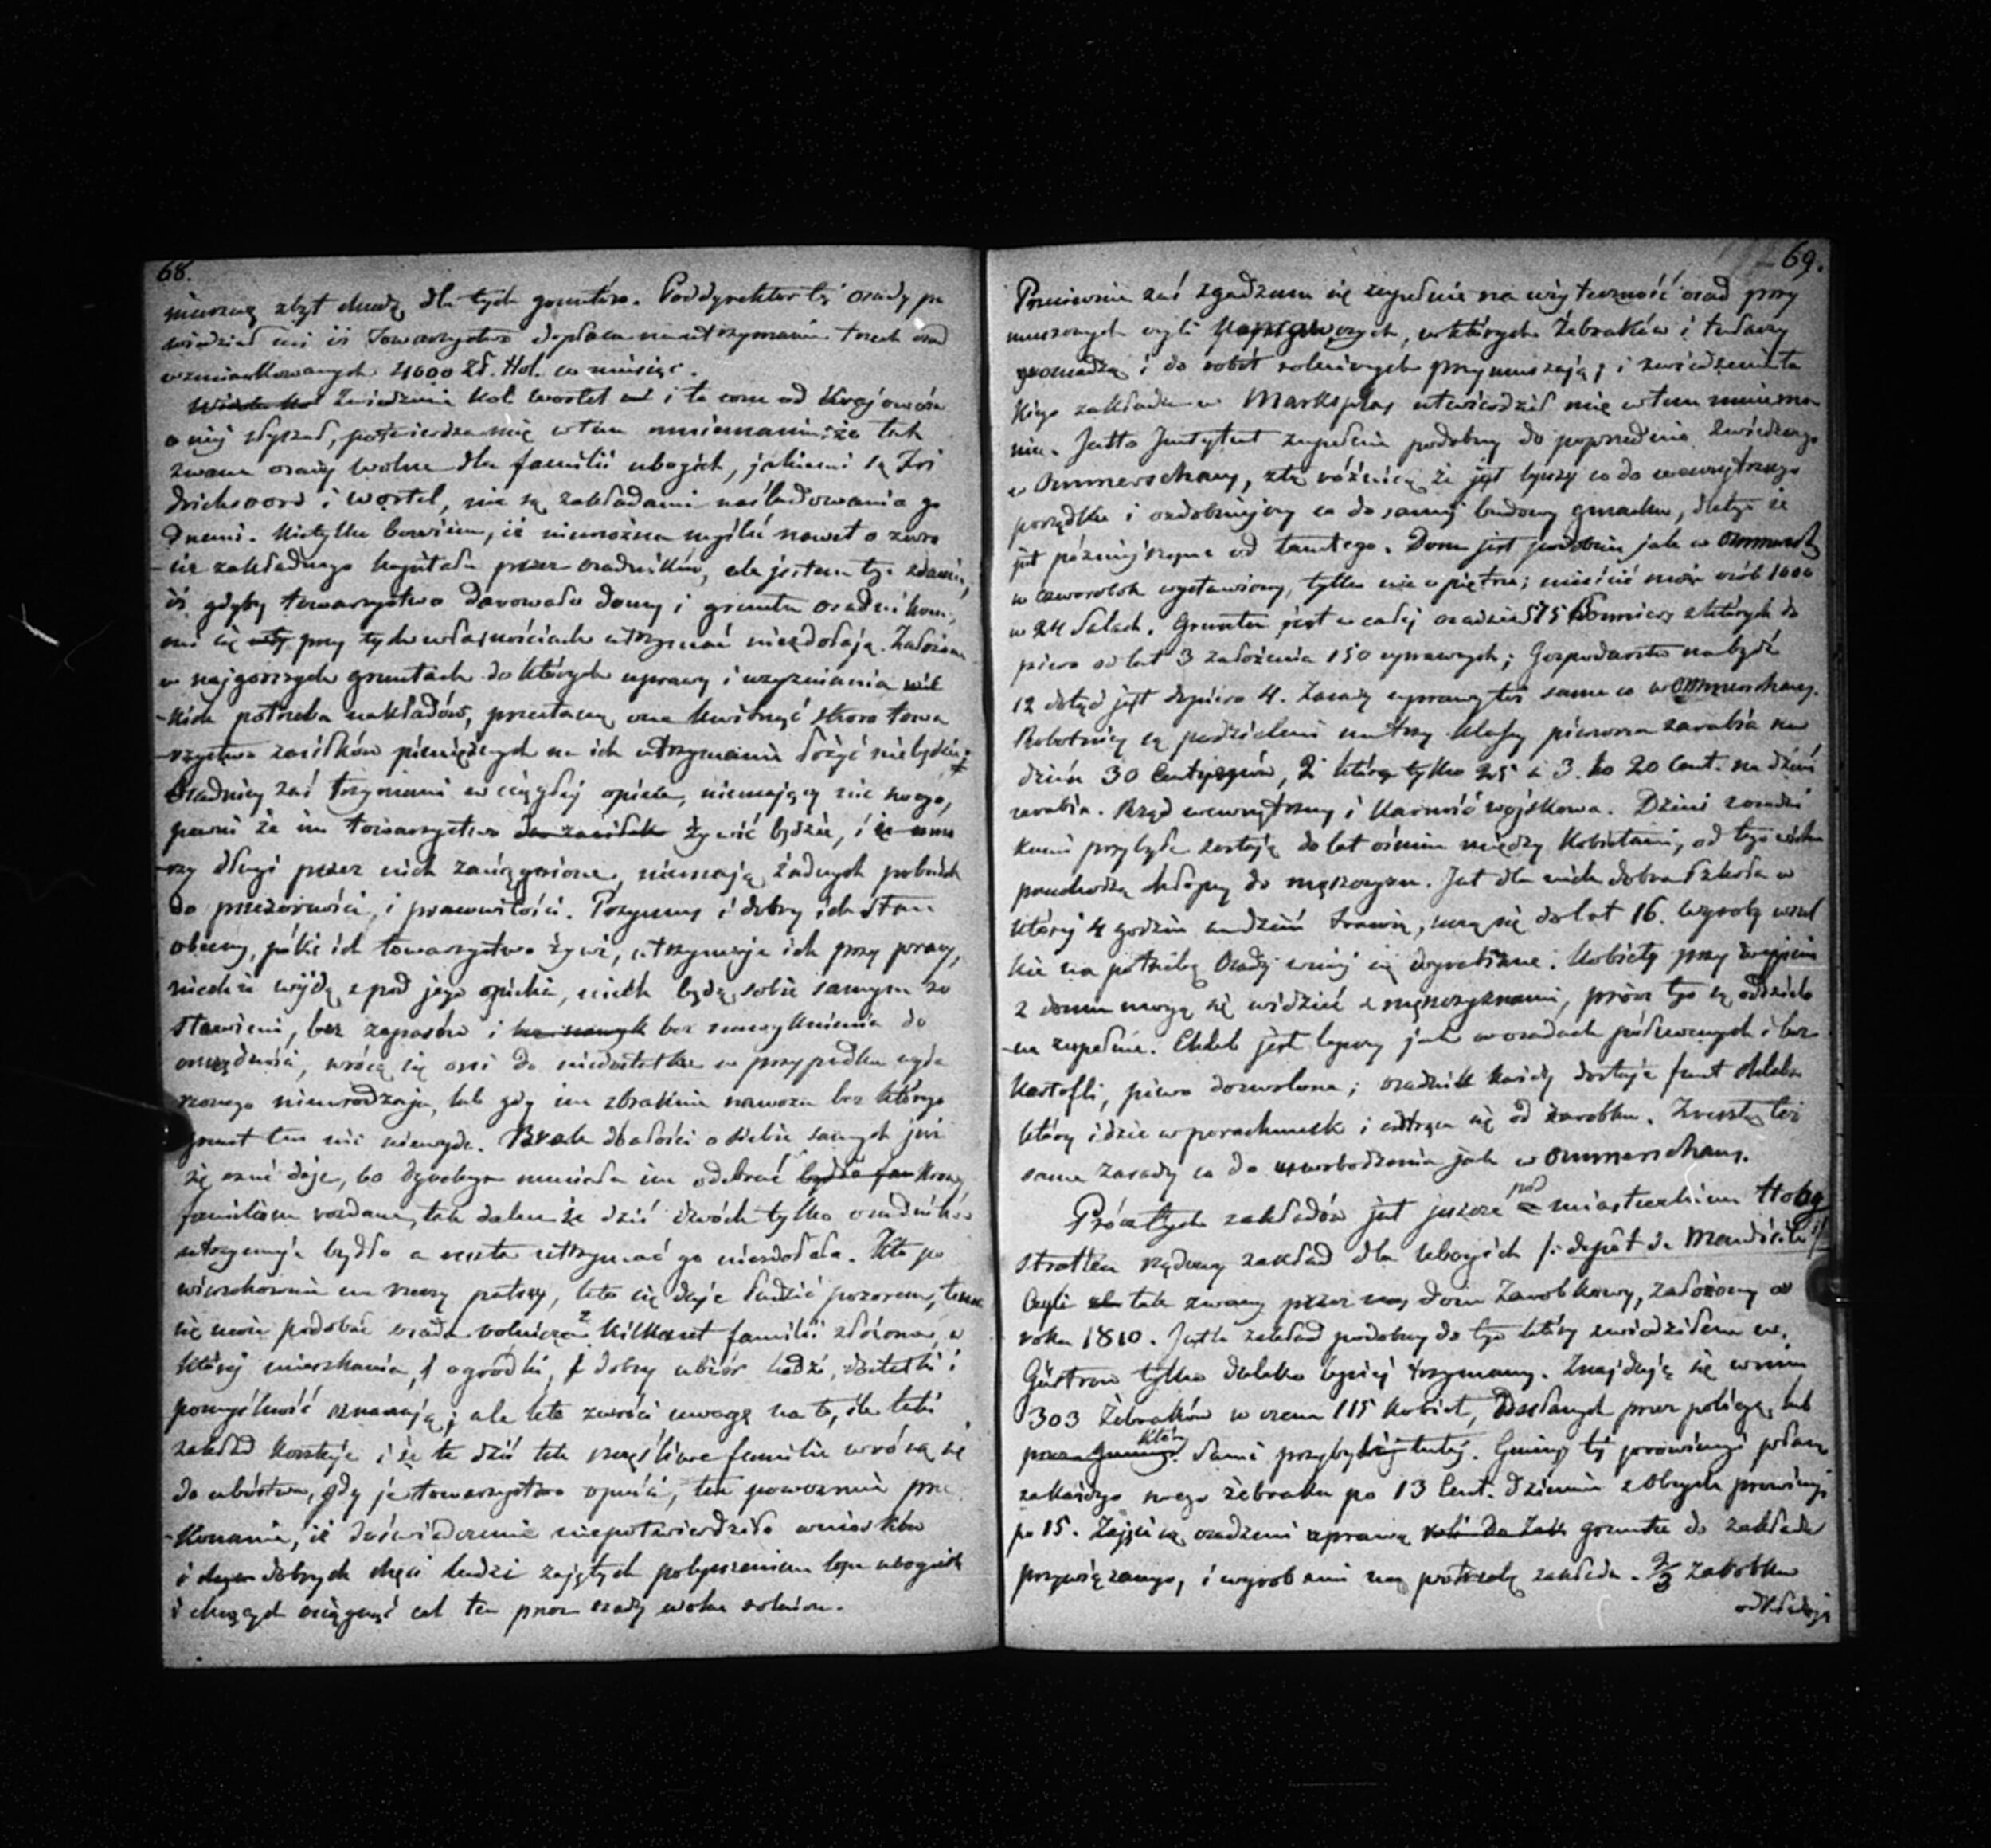 68.
mierzwę zbyt chudą dla tych gruntów. Poddyrektor tej osady po
wiedział mi iż Towarzystwo dopłaca na utrzymanie trzech osad
wzmiankowanych 4600 Zł. Hol. co miesiąc.
Zwiedzenie kol. Wortel i to com od Krajowców
o niej słyszał, potwierdza mię w tem mniemaniu: że tak
zwane osady wolne dla familii ubogich, jakiemi są Fri
drichsoord i Wortel, nie są zakładami naśladowania go
dnemi. Nietylko bowiem, iż niemożna myślić nawet o zwro
-cie zakładnego kapitału przez osadników, ale jestem tego zdania,
iż gdyby towarzystwo darowało domy i grunta osadnikom,
oni się przy tych własnościach utrzymać niezdołają. Założone
w najgorszych gruntach do których uprawy i użyźniania wiel
-kich potrzeba nakładów, przestaną one kwitnąć skoro towa
-rzystwo zasiłków pieniężnych na ich utrzymanie łożyć niebędzie;
Osadnicy zaś trzymani w ciągłej opiece, niemający nic swego,
pewni że im towarzystwo żywić będzie, i
-rzy długi przez nich zaciągnione, niemają żadnych pobudek
do przezorności, i pracowitości. Pozorny i dobry ich stan
obecny, póki ich towarzystwo żywi, utrzymuje ich przy pracy,
niechże wyjdą z pod jego opieki, niech będą sobie samym zo
stawieni, bez zapasów i bez nawyknienia do
oszczędności, wrócą się oni do niedostatku w przypadku wyda
rzonego nieurodzaju, lub gdy im zbraknie nawozu bez którego
grunt ten nic niewyda. Brak dbałości o siebie samych już
się czuć daje, bo Dyrekcya musiała im odebrać krowy
familiom rozdane, tak dalece że dziś dwóch tylko osadników
utrzymuje bydło a reszta utrzymać go niezdołała. Kto po
wierzchownie na rzeczy patrzy, kto się daje łudzić pozorem, temu
się może podobać osada rolnicza z kilkuset familii złożona, w
której mieszkania, ogródki, dobry ubiór ludzi, dostatki i
pomyślność oznaczają; ale kto zwróci uwagę na to, ile taki
zakład kosztuje i że te dziś tak szczęśliwe familie wrócą się
do ubóstwa, gdy je towarzystwo opuści, ten poweźmie prze
-konanie, iż doświadczenie niepotwierdziło wniosków
i dobrych chęci ludzi zajętych polepszeniem losu ubogich
i chcących osiągnąć cel ten przez osady wolne rolnicze.
69.
Przeciwnie zaś zgadzam się zupełnie na użyteczność osad przy
muszonych czyli poprawczych, w których Żebraków i tułaczy
gromadzą i do robót rolniczych przymuszają; i zwiedzenie ta
kiego zakładu w Marksplas utwierdziło mię w tem mniema
niu. Jestto Instytut zupełnie podobny do poprzednio zwiedzonego
w Ommerschany, z tą różnicą że jest lepszy co do wewnętrznego
porządku i ozdobniejszy co do samej budowy gmachu, dlatego że
jest późniejszym od tamtego. Dom jest podobnie jak w Ommersch
w czworobok wystawiony, tylko nie o piętrze; mieścić może osób 1000
w 24 salach. Gruntu jest w całej osadzie 575 Bonnierów z których do
piero od lat 3 założenia 150 uprawnych; Gospodarstw ma być
12 dotąd jest dopiero 4. Zasady uprawy też same co w Ommerschany.
Robotnicy są podzieleni na trzy klassy pierwsza zarabia na
dzień 30 Centymów, 2. która tylko 25 a 3. po 20 Cent. na dzień
zarabia. Rząd wewnętrzny i Karność wojskowa. Dzieci z rodzi
cami przybyłe zostają do lat ośmiu między Kobietami, od tego wieku
przechodzą chłopcy do mężczyzn. Jest dla nich dobra Szkoła w
której 4 godzin na dzień trawią, uczą się do lat 16. Wyroby wszel
kie na potrzebę Osady w niej są wyrabiane. Kobiety przy wyjściu
z domu mogą się widzieć z mężczyznami, prócz tego są oddzielo
-ne zupełnie. Chleb jest lepszy jak w osadach północnych i bez
Kartofli, piwo dozwolone; osadnik każdy dostaje funt chleba
który idzie w porachunek i odtrąca się od zarobku. Zresztą też
same zasady co do uwolnienia jak w Ommerschany.
Prócz tych zakładów jest jeszcze pod miasteczkiem Hoog
stratten rządowy zakład dla ubogich /: depôt de Mendicité :/
czyli tak zwany przez nas dom Zarobkowy, założony od
roku 1810. Jestto zakład podobny do tego który zwiedziłem w
Güstrow tylko daleko lepiej trzymany. Znajduje się w nim
303 Żebraków w czem 115 kobiet, odesłanych przez policyę, lub
którzy sami przybyli tutaj. Gminy tej prowincyi płacą
za każdego swego żebraka po 13 Cent. dziennie z obcych prowincyj
po 15. Zajęci są osadzeni uprawą gruntu do zakładu
przywiązanego, i wyrobami na potrzebę zakładu. 2/3 zarobku
odkładają